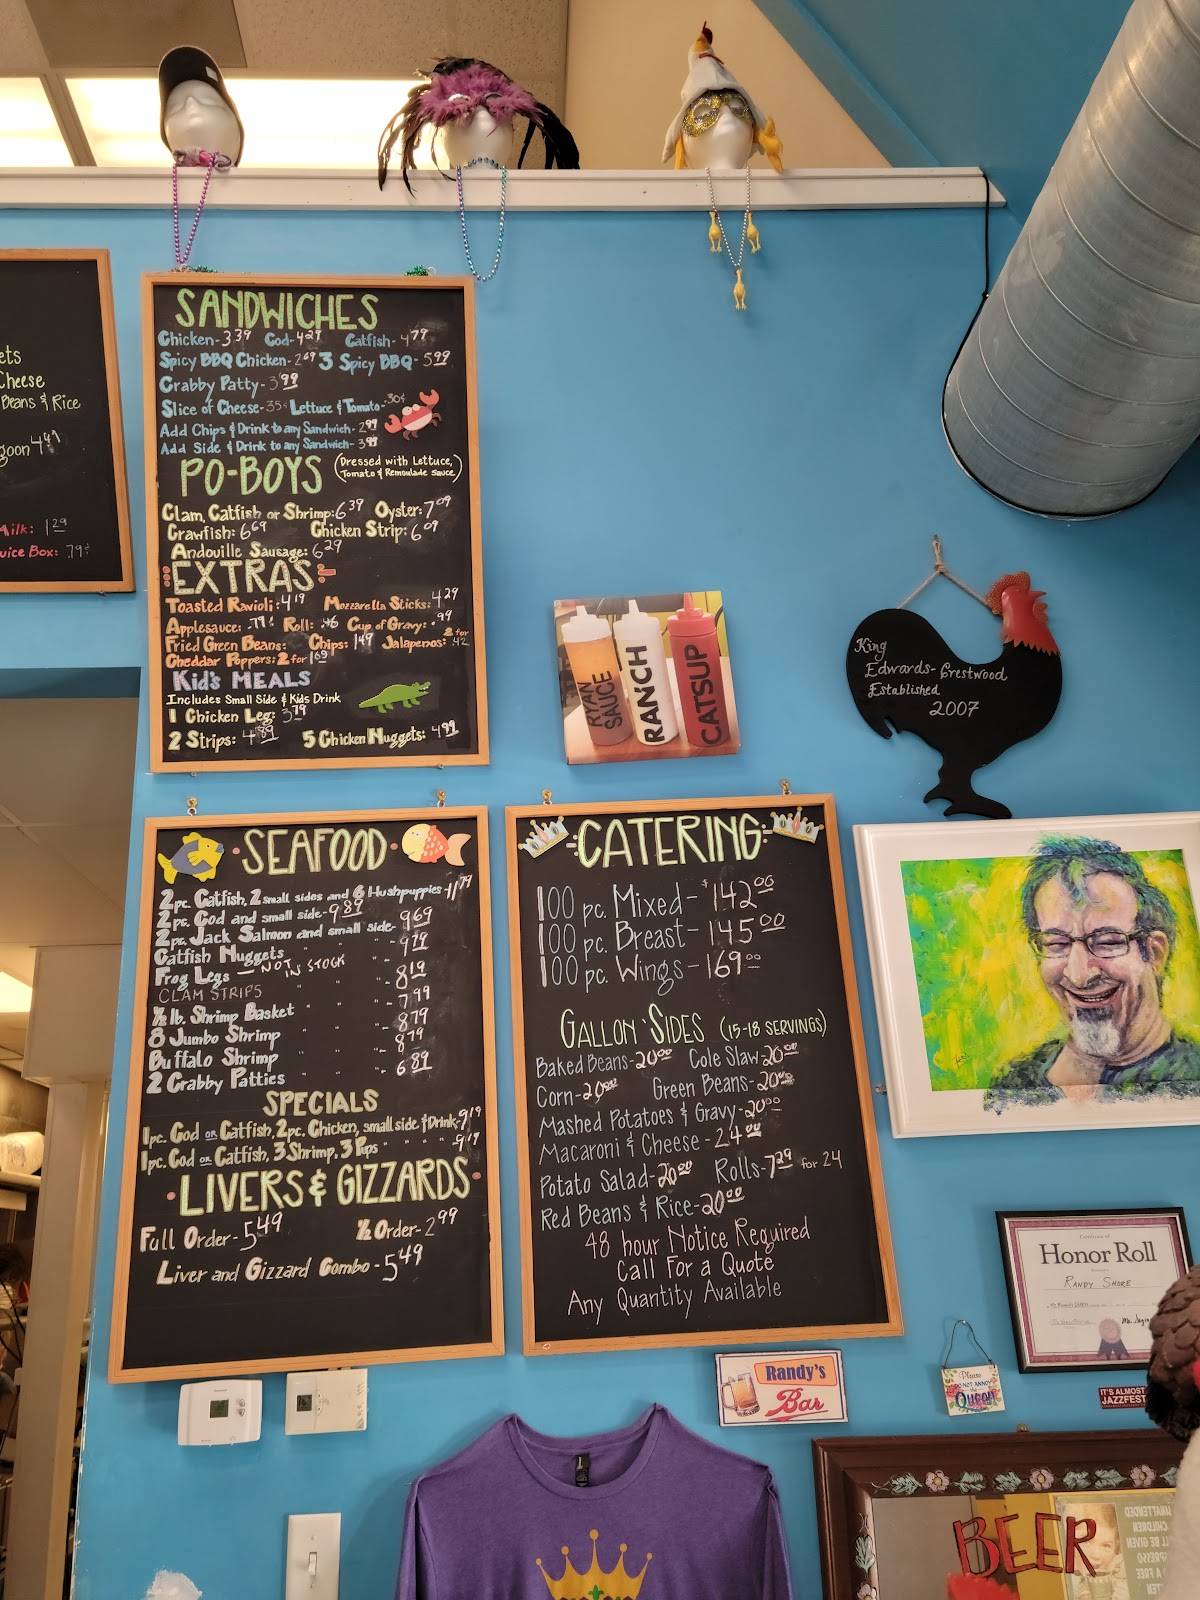 ets
Cheese
Beans & Rice
goon 4
Milk: 1 29
uice Box: .79¢
SANDWICHES
Chicken-3 39 Cod-4 29 Catfish-4 79
Spicy BBQ Chicken-2 69 3 Spicy BBQ-5 99
Crabby Patty-3 99
Slice of Cheese-35¢ Lettuce & Tomato-30¢
Add Chips & Drink to any Sandwich-2 99
Add Side & Drink to any Sandwich-3 99
PO-BOYS (Dressed with Lettuce,
Tomato & Remoulade Sauce)
Clam, Catfish or Shrimp: 6 39 Oyster: 7 09
Crawfish: 6 69 Chicken Strip: 6 09
Andouille Sausage: 6 29
EXTRAS
Toasted Ravioli: 4 19 Mozzarella Sticks: 4 29
Applesauce: .79¢ Roll: .46 Cup of Gravy: .99
Fried Green Beans: Chips: 1 49 Jalapenos: 2 for .42
Cheddar Poppers: 2 for 1 69
Kid's MEALS
Includes Small Side & Kids Drink
1 Chicken Leg: 3 79
2 Strips: 4 89 5 Chicken Nuggets: 4 99
RYAN SAUCE
RANCH
CATSUP
King
Edwards-Crestwood
Established
2007
SEAFOOD
2pc. Catfish, 2 small sides and 6 Hushpuppies-11 79
2pc. Cod and small side-9 89
2pc. Jack Salmon and small side-9 69
Catfish Nuggets " " " "-9 79
Frog Legs - NOT IN STOCK
CLAM STRIPS " " "-8 19
½ lb. Shrimp Basket " " "-7 99
8 Jumbo Shrimp " " "-8 79
Buffalo Shrimp " " "-8 79
2 Crabby Patties " " "-6 89
SPECIALS
1pc. Cod or Catfish, 2pc. Chicken, small side & Drink-9 19
1pc. Cod or Catfish, 3 Shrimp, 3 Pups " " " "-9 19
LIVERS & GIZZARDS
Full Order-5 49 ½ Order-2 99
Liver and Gizzard Combo-5 49
CATERING
100 pc. Mixed-$142 00
100 pc. Breast-145 00
100 pc. Wings-169 00
GALLON SIDES (15-18 SERVINGS)
Baked Beans-20 00 Cole Slaw-20 00
Corn-20 00 Green Beans-20 00
Mashed Potatoes & Gravy-20 00
Macaroni & Cheese-24 00
Potato Salad-20 00 Rolls-7 29 for 24
Red Beans & Rice-20 00
48 hour Notice Required
Call For a Quote
Any Quantity Available
Certificate of
Honor Roll
RANDY SHORE
Randy's
Bar
Please
DO NOT ANNOY
the
QUEEN
IT'S ALMOST
JAZZFEST
BEER
UNATTENDED
CHILDREN
LL BE GIVEN
PRESSO
A FREE
TEN